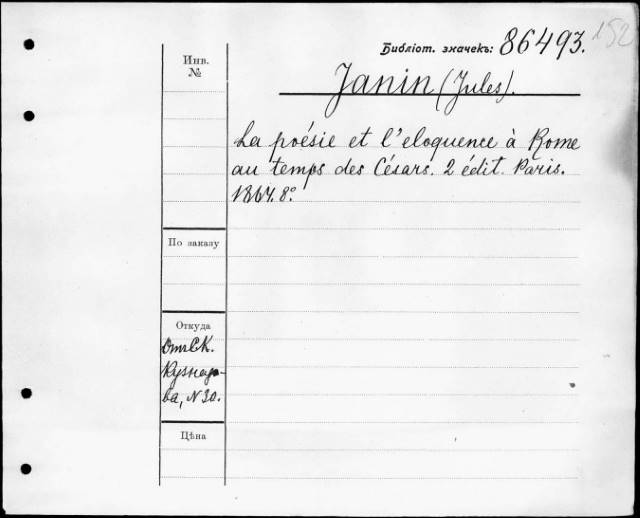 Библіот. значекъ: 86493. 152
Инв. №
Janin (Jules).
La poésie et l'eloquence à Rome
au temps des Césars. 2 édit. Paris.
1864. 8°
По заказу
Откуда
Кузнецо-
ва, N 30.
Цѣна